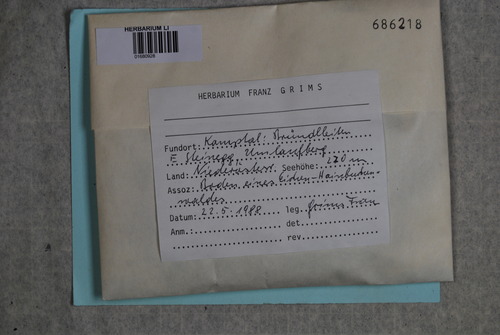 686218
HERBARIUM LI
HERBARIUM FRANZ GRIMS
Fundort: Kamptal: Bründlleiten
E Steinegg, Umlaufberg
Land: Niederösterr. Seehöhe: 270 m
Assoz: Boden eines Eichen-Hainbuchen-
waldes
Datum: 22.5.1988 leg. Grims Franz
Anm.: det
rev